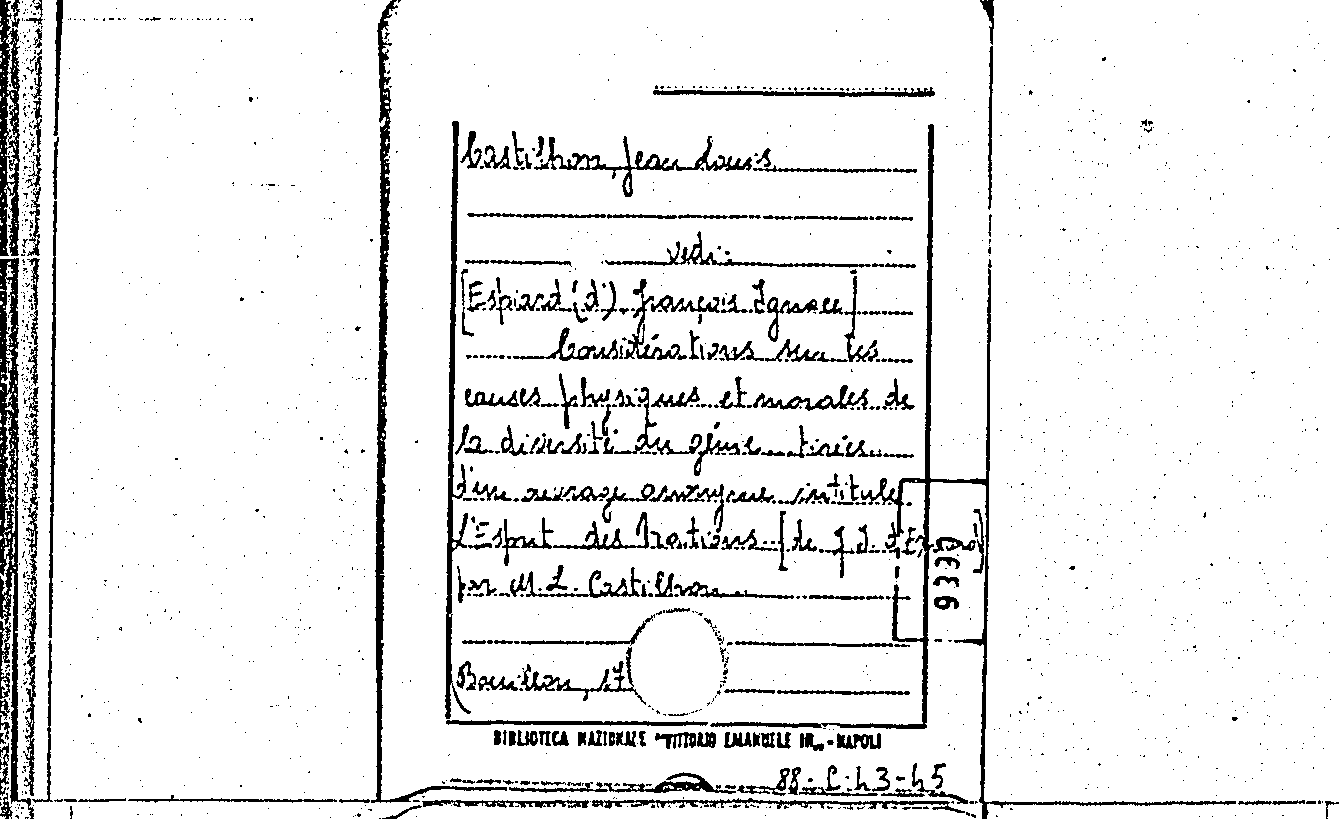 Castilhon, Jean Louis.
vedi:
[Espiard (d'), François Ignace]
Considérations sur les
causes physiques et morales de
la diversité du génie... tirées...
d'un ouvrage anonyme intitulé
L'Esprit des Nations... [de F. I. d'Espiard]
par M. L. Castilhon...
(Bouillon, 17
BIBLIOTECA NAZIONALE "VITTORIO EMANUELE III„ - NAPOLI
9336